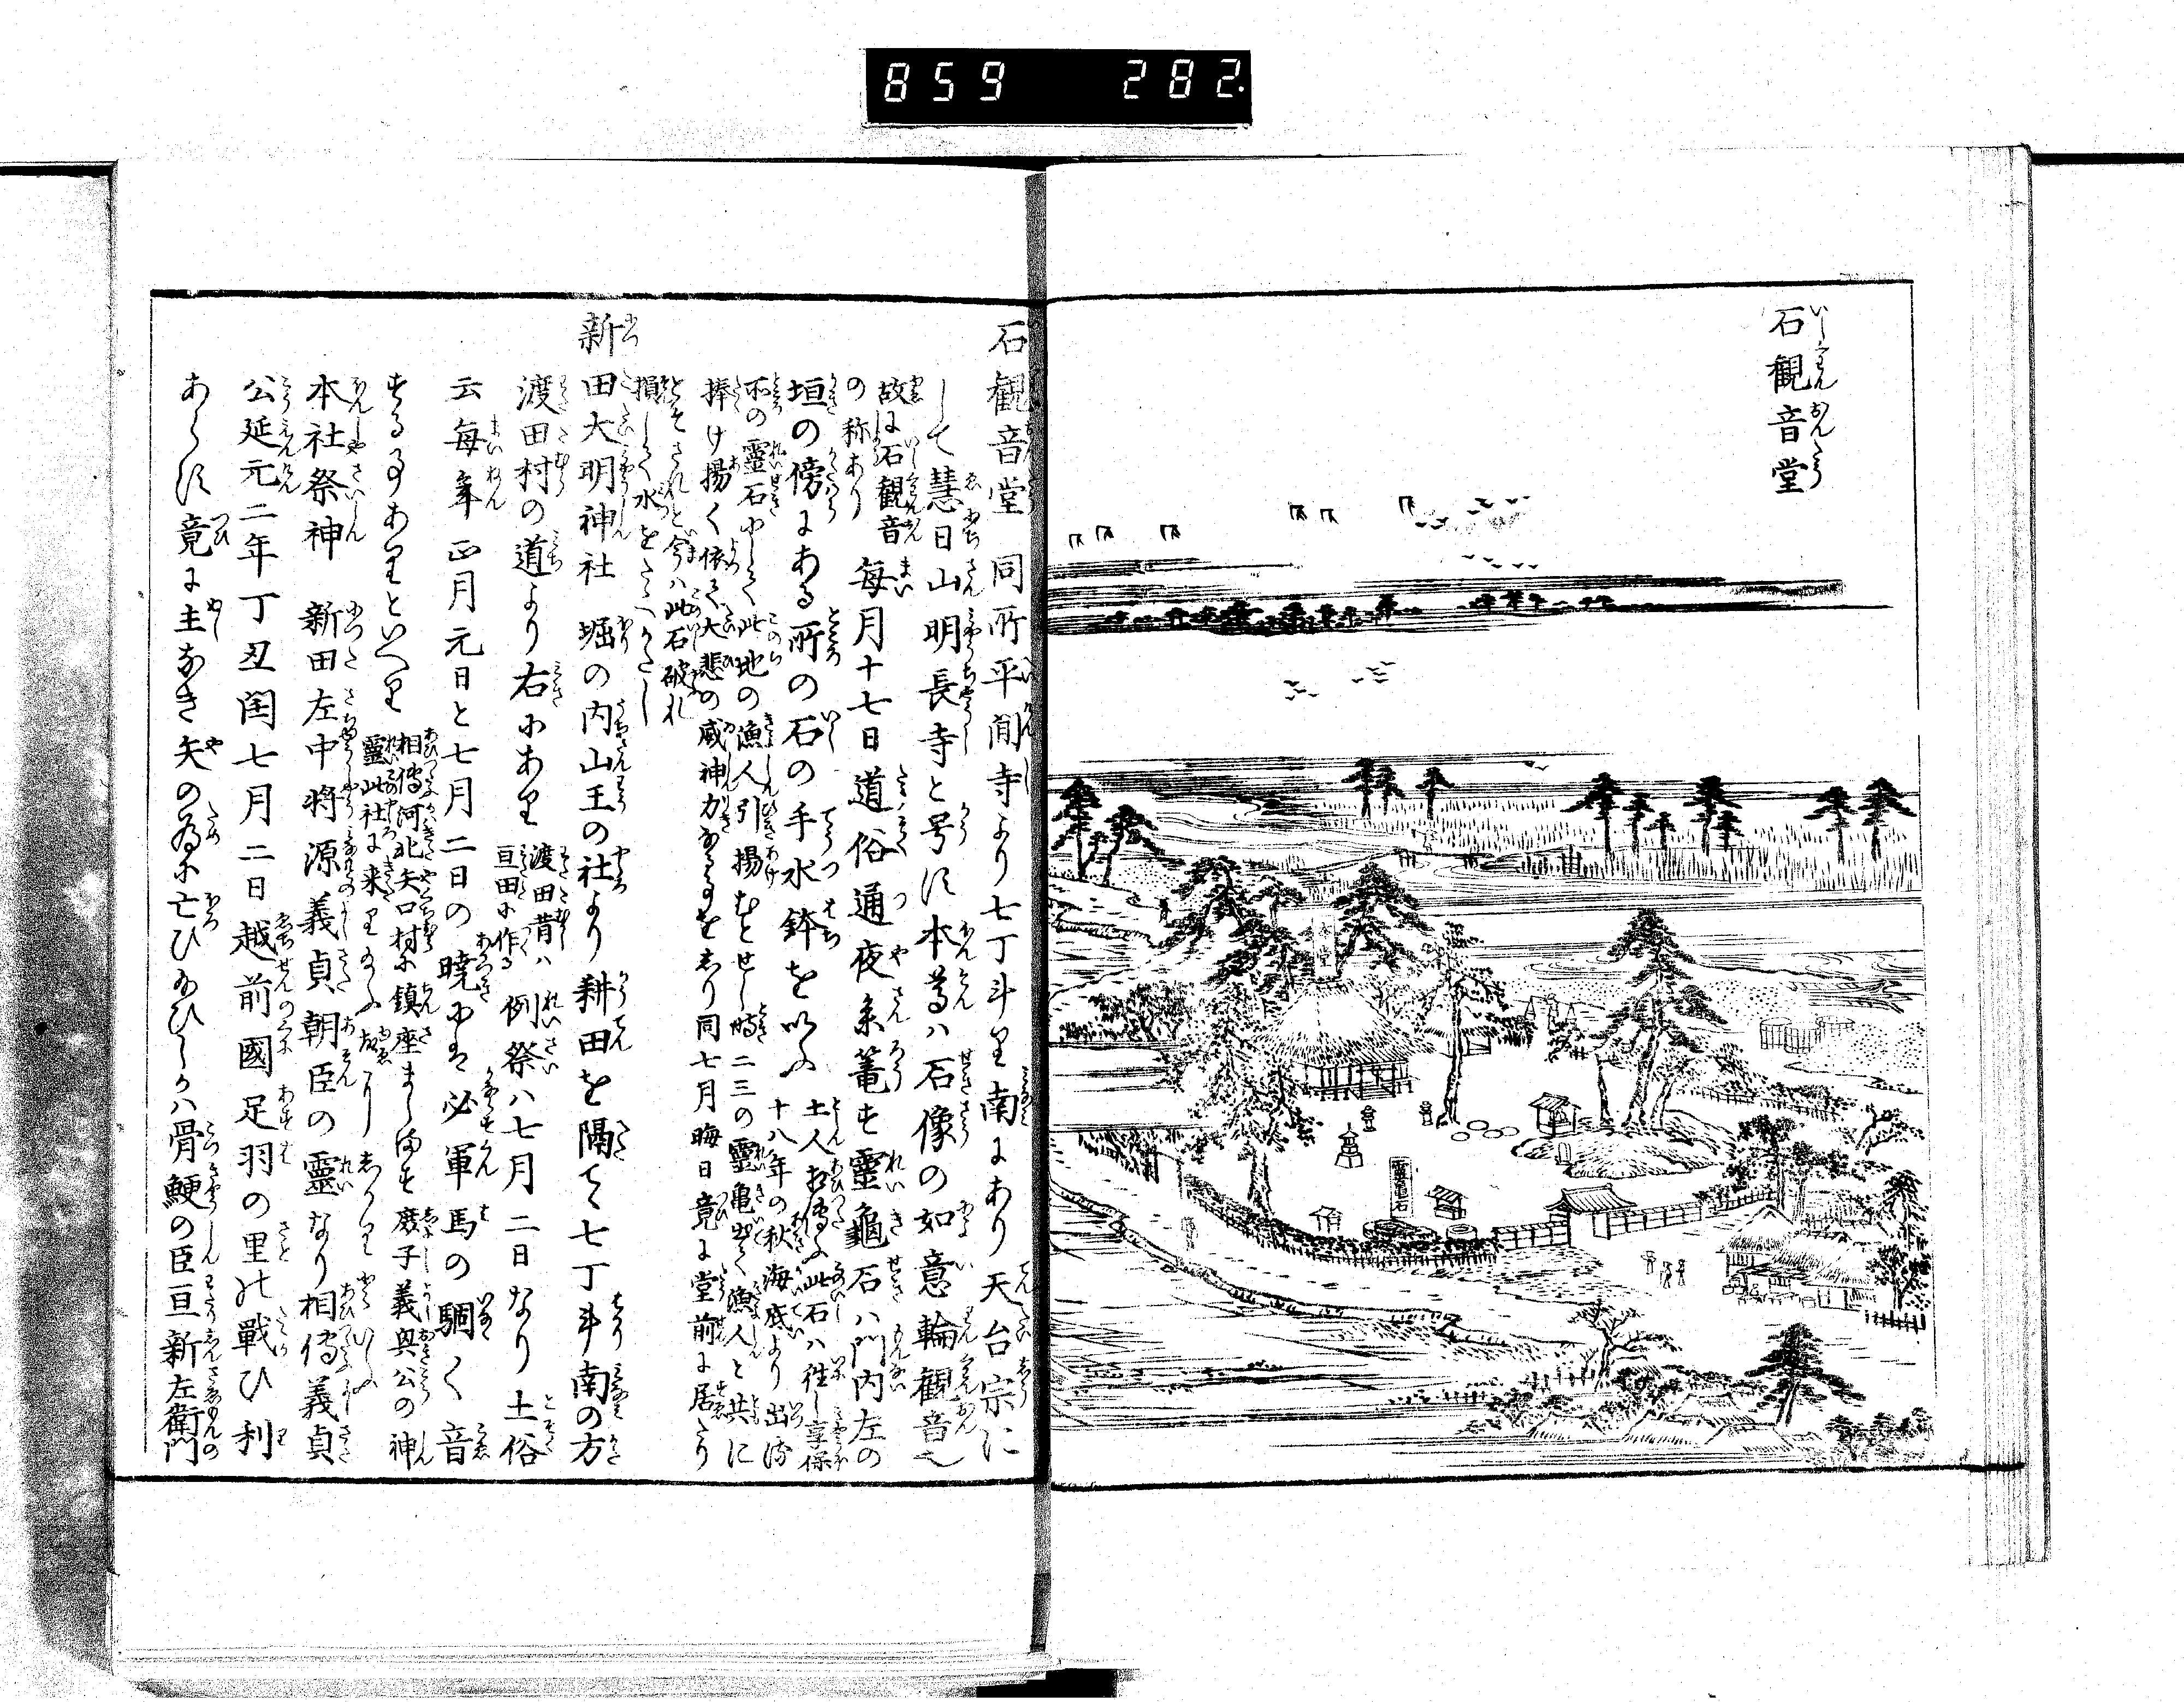 859 282.
石観音堂
靈亀石
石観音堂 同所平間寺より七丁斗り南にあり天台宗に
して慧日山明長寺と号す本尊ハ石像の如意輪観音也
故に石観音
の称あり
毎月十七日道俗通夜参篭す靈龜石ハ門内左の
垣の傍にある所の石の手水鉢を以ふ
土人相傳ふ此石ハ往し享保
十八年の秋海底より出現
の靈石にして此地の漁人引揚むとせし時二三の靈亀出て漁人と共に
捧け揚く依て大悲の威神力なる事をしり同七月晦日竟に堂前に居たり
とそされと今ハ此石破れ
損して水をたゝへかたし
新田大明神社 堀の内山王の社より耕田を隔てゝ七丁斗南の方
渡田村の道より右にあり
渡田昔ハ
亘田に作る
例祭ハ七月二日なり土俗
云毎年正月元日と七月二日の暁にハ必軍馬の嘶く音
する事ありといへり
相傳河北矢口村に鎮座まします庶子義興公の神
靈此社に来り
本社祭神 新田左中将源義貞朝臣の靈なり相傳義貞
公延元二年丁丑閏七月二日越前國足羽の里の戰ひ利
あらす竟に主なき矢の為に亡ひ給ひしかハ骨鯁の臣亘新左衛門